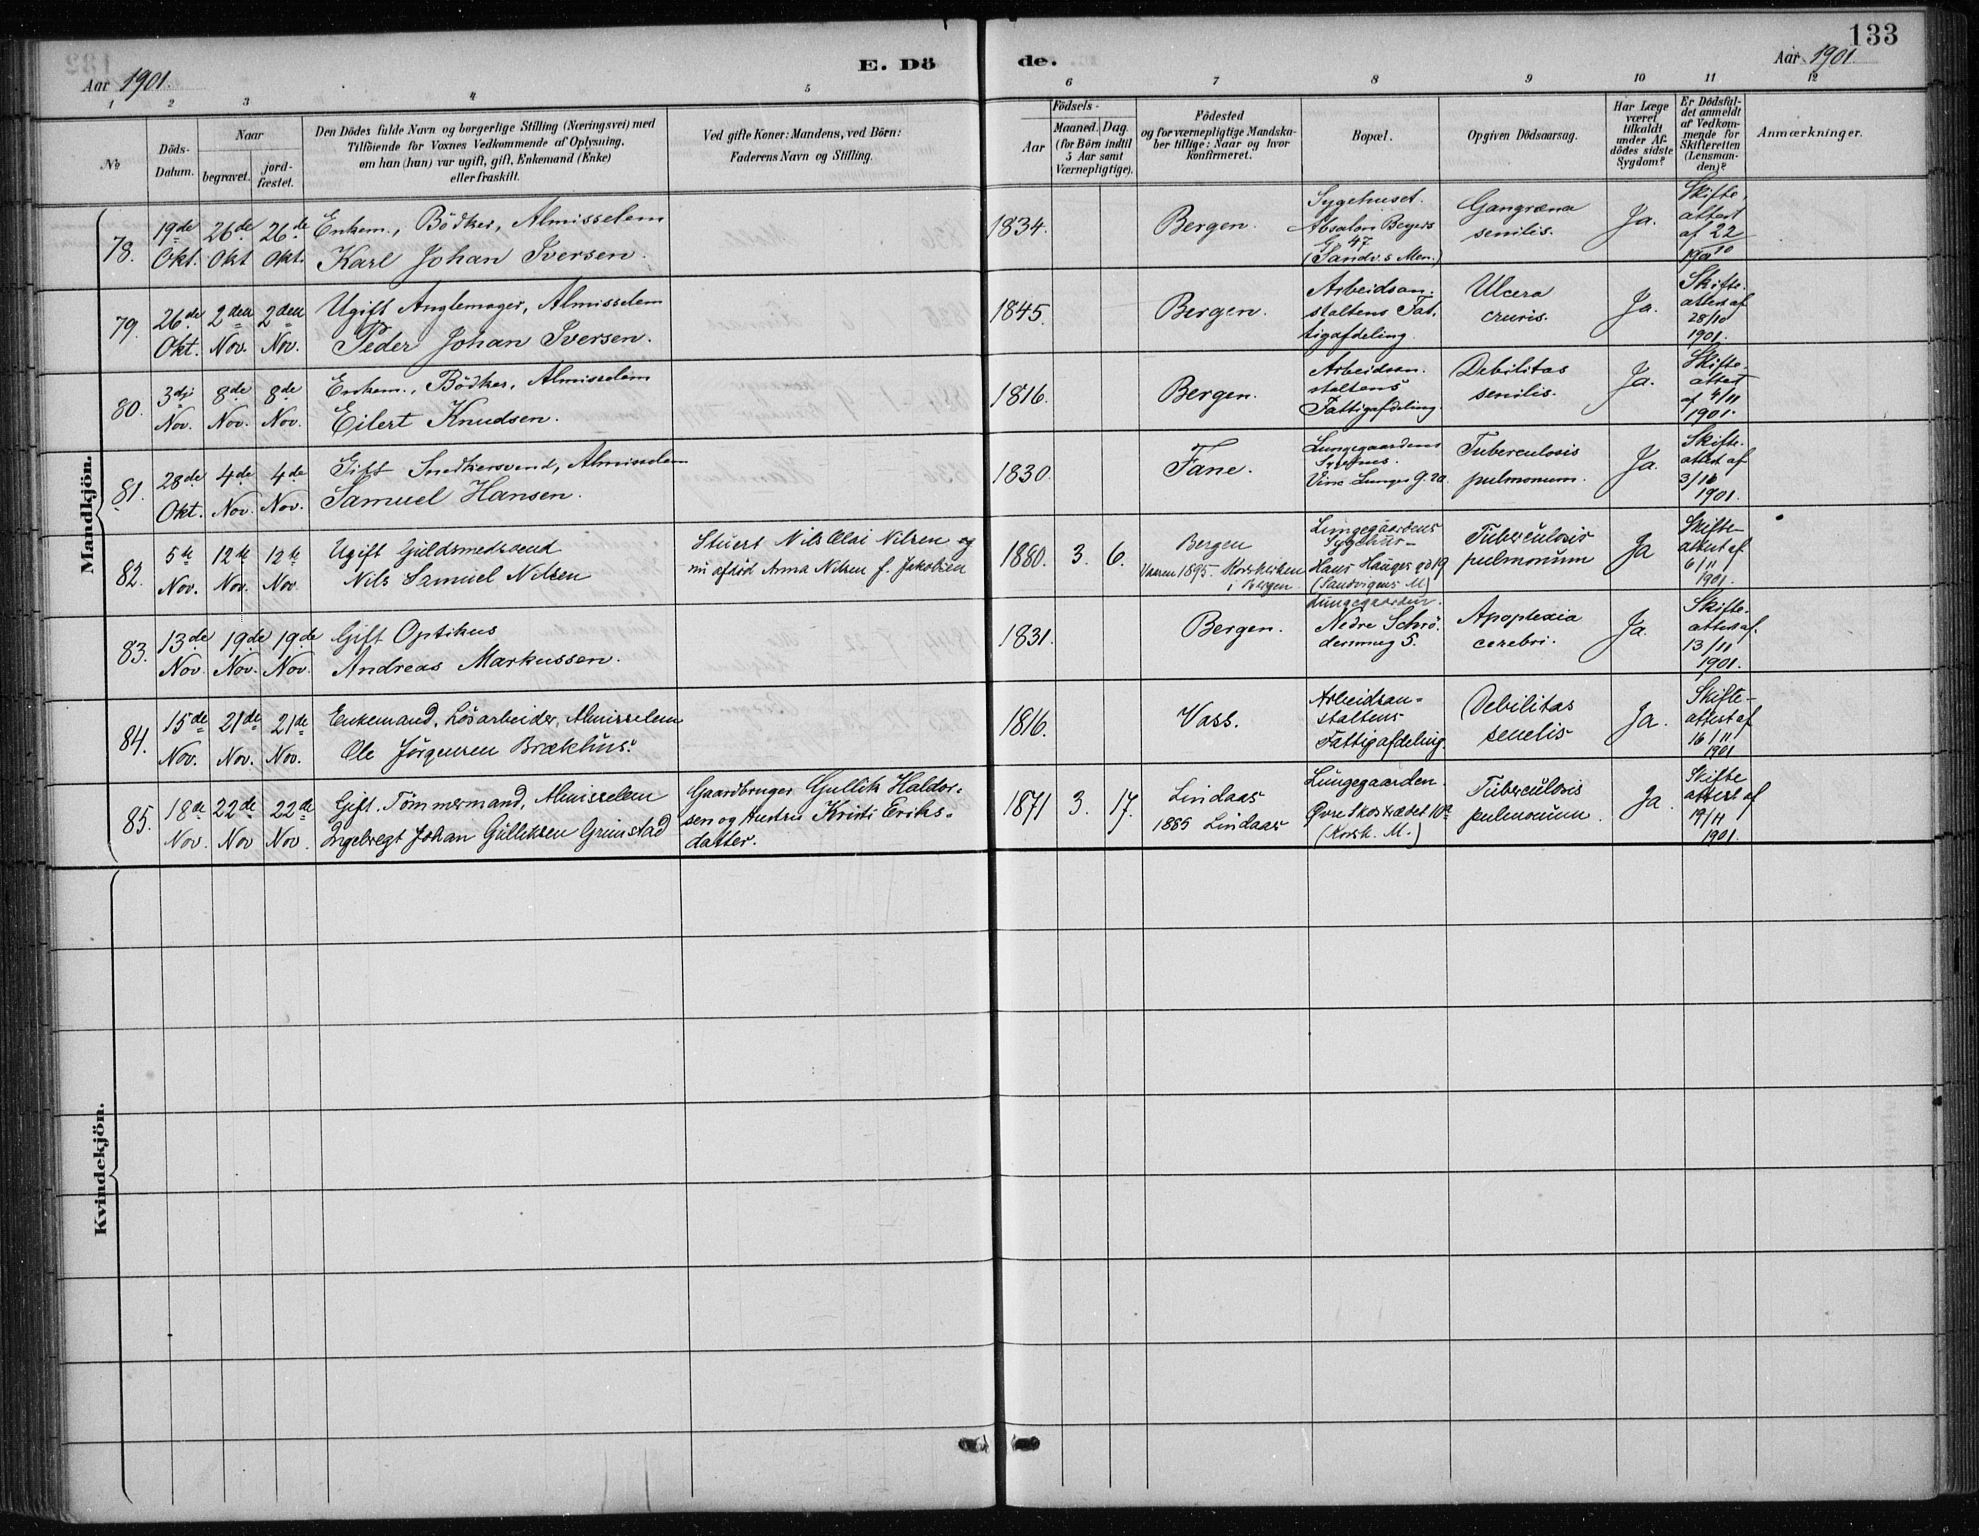 133
Aar 1901.
E. Dö
de.
Aar 1901
1 2 3 4 5 6 7 8 9 10 11 12
No
Döds-
Datum.
Naar
begravet.
jord-
fæstet.
Den Dödes fulde Navn og borgerlige Stilling (Næringsvei) med
Tilföiende for Voxnes Vedkommende af Oplysning,
om han (hun) var ugift, gift, Enkemand (Enke)
eller fraskilt.
Ved gifte Koner: Mandens, ved Börn:
Faderens Navn og Stilling.
Födsels-
Aar
Maaned. Dag.
(for Börn indtil
5 Aar samt
Værnepligtige).
Födested
og for værnepligtige Mandska-
ber tillige: Naar og hvor
konfirmeret.
Bopæl.
Opgiven Dödsaarsag.
Har Læge
været
tilkaldt
under Af-
dödes sidste
Sygdom?
Er Dödsfal-
det anmeldt
af Vedkom-
mende for
Skifteretten
(Lensman-
den)?
Anmærkninger.
Mandkjön.
78. 19de Okt. 26de Okt 26de Okt.
Enkem., Bödker, Almisselem
Karl Johan Iversen.
1834. Bergen.
Sygehuset.
Absalon Beyers
G. 47
(Sandv.s Men.)
Gangræna
senilis.
Ja.
Skifte,
attest
af 22/10
1901
79. 26de Okt. 2den Nov. 2den Nov.
Ugift Anglemager, Almisselem
Peder Johan Iversen.
1845. Bergen.
Arbeidsan-
staltens Fat-
tigafdeling.
Ulcera
cruris.
Ja.
Skifte-
attest af
28/10
1901.
80. 3dj Nov. 8de Nov. 8de Nov.
Enkem., Bödker, Almisselem
Eilert Knudsen.
1816. Bergen.
Arbeidsan-
staltens
Fattigafdeling.
Debilitas
senilis.
Ja.
Skifte-
attest
af 4/11
1901.
81. 28de Okt. 4de Nov. 4de Nov.
Gift Snedkersvend, Almisselem
Samuel Hansen.
1830. Fane.
Lungegaardens
G. 20.
Tuberculosis
pulmonum.
Ja.
Skifte-
attest af
1901.
82. 5te Nov. 12te Nov. 12te Nov.
Ugift Guldsmedsvend
Nils Samuel Nilsen
Stuert Nils Olai Nilsen og
nu afdöd Anna Nilsen f. Jakobsen
1880. 3. 6.
Bergen
Vaaren 1895. Korskirken
i Bergen
Lungegaardens
Sygehus-
Hans Hauges gd 19
(Sandvigens M)
Tuberculosis
pulmonum
Ja
Skifte-
attest af
6/11
1901.
83. 13de Nov. 19de Nov. 19de Nov.
Gift Optikus
Andreas Markussen.
1831. Bergen.
Lungegaarden.
Nedre Schrö-
dersmug 5.
Apoplexia
cerebri.
Ja.
Skifte-
attest af.
13/11
1901.
84. 15de Nov. 21de Nov. 21de Nov.
Enkemand, Lösarbeider, Almisselem
Ole Jörgensen Brækhus.
1816. Vass.
Arbeidsan-
staltens
Fattigafdeling.
Debilitas
senelis
Ja.
Skifte-
attest af
16/11
1901
85. 18de Nov. 22de Nov 22de Nov.
Gift. Tömmermand, Almisselem
Ingebregt Johan Gulliksen Grimstad
Gaardbruger Gullik Haldor-
sen og Hustru Kristi Eriks-
datter.
1871 3. 17.
Lindaas
1885 Lindaas
Lungegaarden.
Övre Skostrædet 10a
(Korsk. M.)
Tuberculosis
pulmonum.
Ja.
Skifte
attest af
19/11
1901.
Kvindekjön.